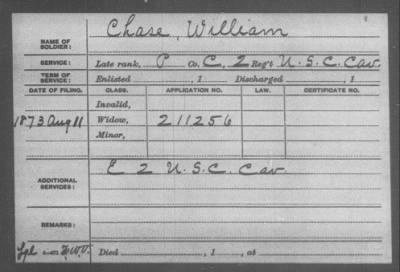 NAME OF SOLDIER: Chase, William
SERVICE: Late rank, P Co. C, 2 Reg't U.S.C. Cav.
TERM OF SERVICE: Enlisted , 1 Discharged , 1
DATE OF FILING. CLASS. APPLICATION NO. LAW. CERTIFICATE NO.
Invalid,
1873 Aug 11 Widow, 211256
Minor,
ADDITIONAL SERVICES: E 2 U.S.C. Cav
REMARKS:
Died , 1 , at